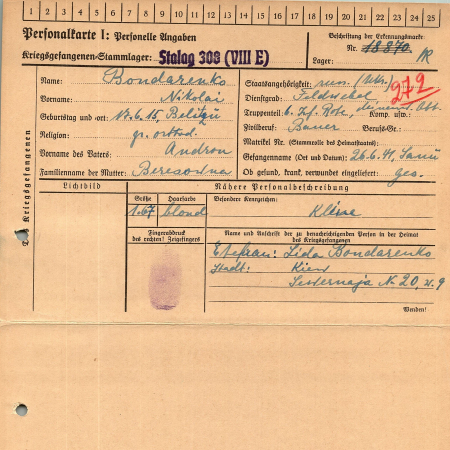 1 2 3 4 5 6 7 8 9 10 11 12 13 14 15 16 17 18 19 20 21 22 23 24 25
Personalkarte I: Personelle Angaben
Beschriftung der Erkennungsmarke
Kriegsgefangenen-Stammlager: Stalag 308 (VIII E)
Nr. 18870
Lager:
Des Kriegsgefangenen
Name: Bondarenko
Vorname: Nikolai
Geburtstag und -ort: 17.6.15
Religion: gr. orthod.
Vorname des Vaters: Andron
Familienname der Mutter: Beresowna
Staatsangehörigkeit: russ. (Ukr.)
272
Dienstgrad: Feldwebel
Truppenteil: 6. Inf. Rgt. Komp. usw.:
Zivilberuf: Bauer Berufs-Gr.:
Matrikel Nr. (Stammrolle des Heimatstaates):
Gefangennahme (Ort und Datum): 26.6.41,
Ob gesund, krank, verwundet eingeliefert: ges.
Lichtbild
Nähere Personalbeschreibung
Größe Haarfarbe Besondere Kennzeichen:
1.67 blond
Fingerabdruck
des rechten! Zeigefingers
Name und Anschrift der zu benachrichtigenden Person in der Heimat
des Kriegsgefangenen
Ehefrau: Lida Bondarenko
Stadt: Kiew
No 20,
Wenden!